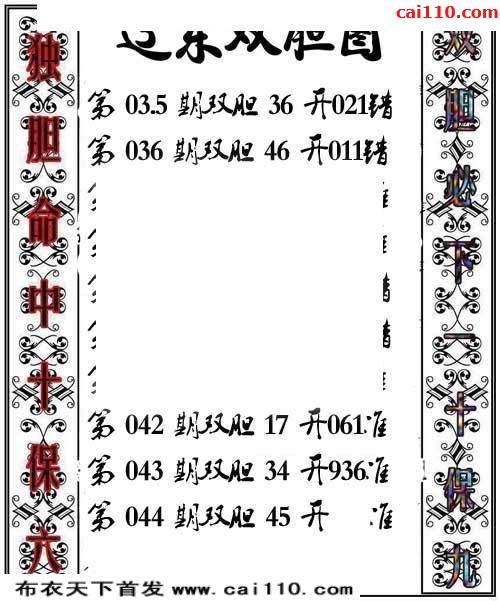 cai110.com
东双胆图
独胆命中十保六
第 03.5 期双胆 36 开021错
第 036 期双胆 46 开011错
第 042 期双胆 17 开061准
第 043 期双胆 34 开936准
第 044 期双胆 45 开 准
双胆必下一十保九
布衣天下首发 www.cai110.com